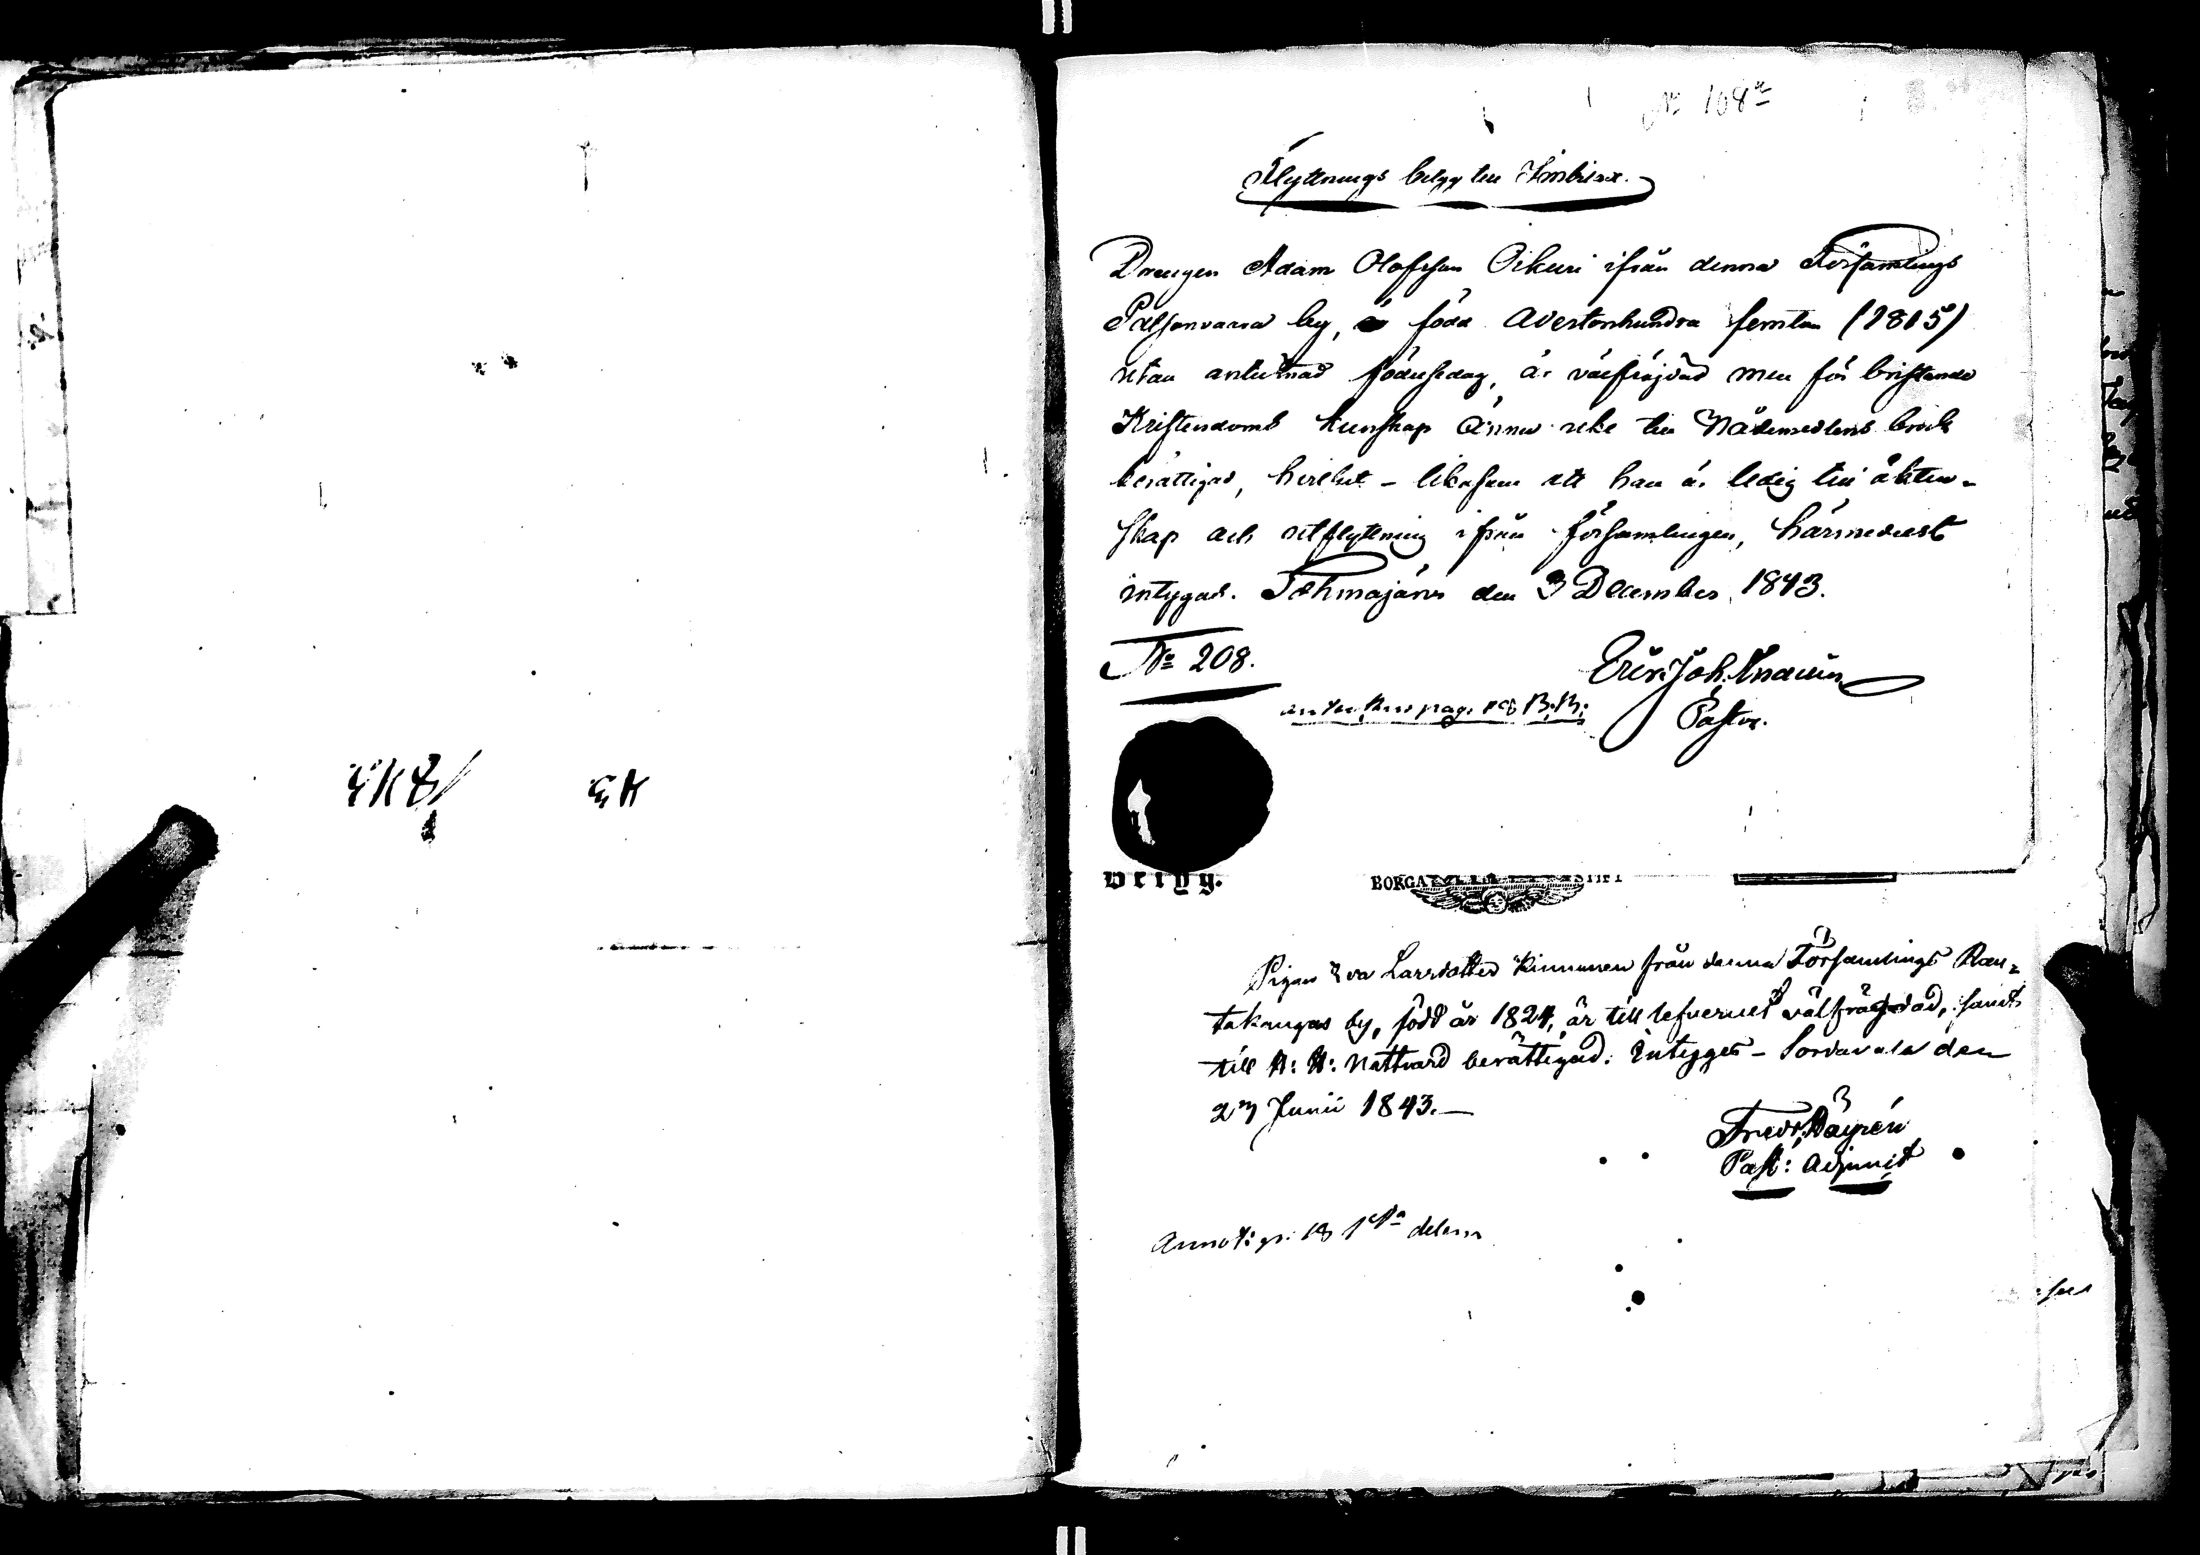 No 108
Flyttnings betyg till Imbilax.
Drengen Adam Olofsson Oikuri ifrån denna Församlings
Pälsonvaara by, född Adertonhundra femton (1815)
utan antecknad födelsedag, är välfrejdad men för bristande
Kristendoms kunskap ännu icke till Nådemedlens bruk
berättigad, hvilket - likasom att han är ledig till äkten-
skap och utflyttning ifrån församlingen, härmedelst
intygas. Tohmajärvi den 3 December 1843.
No 208.
Eric Joh.
Pastor.
pag. B.B.
Betyg.
BORGÅ STIFT
Pigan Eva Larsdotter Kinnunen från denna Församlings Rau=
takangas by, född år 1824, är till lefvernet välfrägdad, samt
till H: H: Nattvard berättigad. Intygges - Sordavala den
27 Junii 1843.-
Fredr.
Past: Adjunct
Annot: p: 18 1sta delen